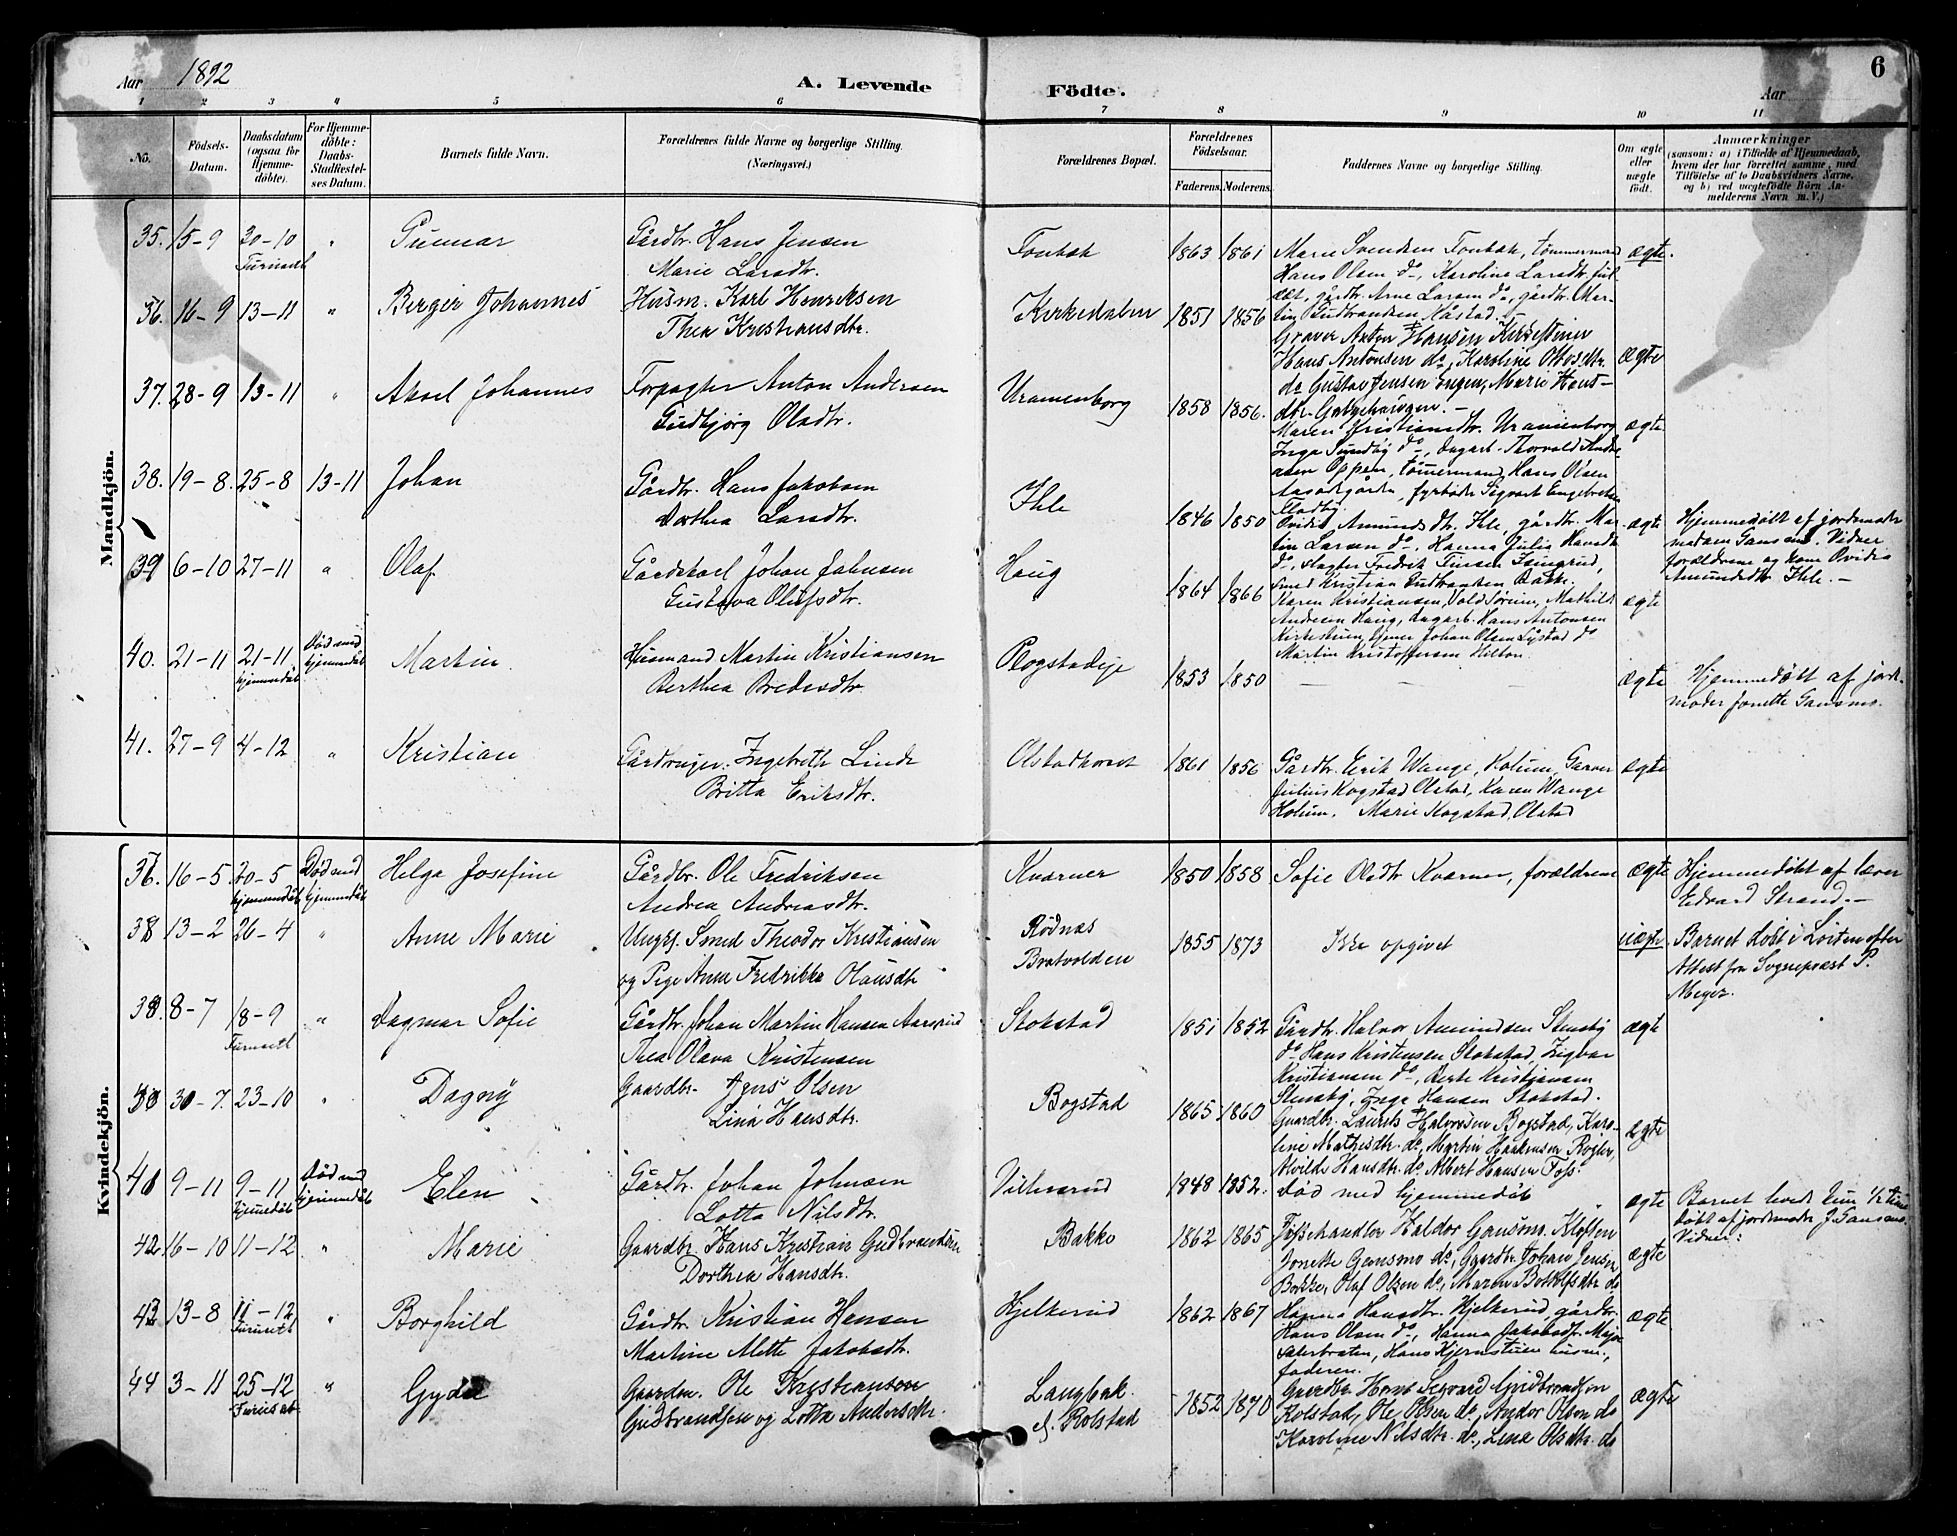 Aar 1892
A. Levende Födte.
Aar
6
1 2 3 4 5 6 7 8 9 10 11
No.
Födsels-Datum.
Daabsdatum (ogsaa for Hjemmedöbte).
For Hjemmedöbte: Daabs-Stadfæstelses Datum.
Barnets fulde Navn.
Forældrenes fulde Navne og borgerlige Stilling. (Næringsvei.)
Forældrenes Bopæl.
Forældrenes Födselsaar.
Faderens. Moderens.
Faddernes Navne og borgerlige Stilling.
Om ægte eller uægte födt.
Anmærkninger
(saasom: a) i Tilfælde af Hjemmedaab, hvem der har forrettet samme, med Tilföielse af to Daabsvidners Navne, og b) ved uægtefödte Börn Anmelderens Navn m. V.)
Mandkjön.
35. 15-9 30-10 Furuseth " Gunnar Gårdbr. Hans Jensen
Marie Larsdtr.
Fonbæk 1863 1861 Marie Svendsen Fonbæk, tømmermand
Hans Olsen do, Karoline Larsdtr.
gårdbr. Arne Larsen do, gårdbr. Mar-
tin Gudbrandsen Håstad.
ægte.
36. 16-9 13-11 " Berger Johannes Husm. Karl Henriksen
Thea Kristiansdtr.
Kirkedalen 1851 1856
Graver Anton Hansen Kirkestuen
Hans Antonsen do, Karoline Ottosdtr.
do Gustav Jensen Engen, Marie Hans-
dtr. Galgehaugen.
ægte
37. 28-9 13-11 " Aksel Johannes Forpagter Anton Andersen
Gudbjørg Olsdtr.
Uranienborg 1858 1856.
Maren Kristiansdtr. Uranienborg
Inga Sundby do, ungarb. Thorvald Andre-
asen Oppen, tømmermand Hans Olsen
fyrbøder Sigvart Engebretsen
Fladby.
ægte
38. 19-8. 25-8 13-11 Johan Gårdbr. Hans Jakobsen
Dorthea Larsdtr.
Ihle 1846 1850 Ovidia Amundsdtr. Ihle, gårdbr. Mar-
tin Larsen do, Hanna Julia Hansdtr.
do, Slagter Fredrik Finsen
Smed Kristian Gudbrandsen Bakke.
ægte
Hjemmedøbt af jordemoder
madam Gansmo. Vidner
forældrene og kone Ovidia
Amundsdtr. Ihle. –
39 6-10 27-11 " Olaf Gårdskarl Johan Johnsen
Gustava Olufsdtr.
Haug 1864 1866
Karen Kristiansen, Vold Sørum, Mathilde
Andresen Haug, ungarb. Hans Antonsen
Kirkestuen, tjener Johan Olsen Lystad do
Martin Kristoffersen Hilton.
ægte
40. 21-11 21-11 hjemmedøb. Død med hjemmedåb Martin. Husmand Martin Kristiansen
Berthea Bredesdtr.
Rogstadeje 1853 1850 – – – ægte
Hjemmedøbt af jorde-
moder Jonette Gansmo.
41. 27-9 4-12 " Kristian Gårdbruger. Ingebreth Linde
Britta Eriksdtr.
Olstadhornet 1861 1856 Gårdbr. Erik Wange, Holum, Garver
Julius Kogstad Olstad, Karen Wange
Holum. Marie Kogstad, Olstad
ægte
Kvindekjön.
37. 16-5. 20-5 hjemmedøbt Død med hjemmedåb Helga Josefine Gårdbr. Ole Fredriksen
Andrea Andreasdtr.
Kværner 1850 1858 Sofie Olsdtr Kværner, forældrene ægte
Hjemmedøbt af lærer
Edvard Strand. –
38 13-2 26-4 " Anne Marie Ungk. Smed Theodor Kristiansen
og Pige Anne Fredrikke Olausdtr
Rødnæs
Bratvolden
1855 1873 Ikke opgivet uægte.
Barnet døbt i Loiten efter
Attest fra Sognepræst P.
Meyer.
39. 8-7 18-9 Furuseth " Dagmar Sofie Gårdbr. Johan Martin Hansen
Thea Olava Kristensen
Stokstad 1851 1852 Gårdbr. Halvor Amundsen Stensby
do Hans Kristensen Stokstad, Sigvar
Kristiansen do, Berte Kristiansen
Stensby, Inga Hansen Stokstad.
ægte
30-7. 23-10 " Dagny Gaardbr. Jens Olsen
Lina Hansdtr.
Bogstad 1865 1860
Gaardbr. Laurits Halvorsen Bogstad, Karo-
line Mathisdtr. do, Martin Haakensen Rogler,
Alvilde Hansdtr. do, Albert Hansen Foss.
ægte
41 9-11 9-11 hjemmedøbt Død med hjemmedåb Elen Gårdbr. Johan Johnsen
Lotta Nilsdtr.
1848 1852. død med hjemmedåb ægte
Barnet levede kun 1/2 time
døbt af jordemoder J. Gansmo.
Vidner:
42 16-10 11-12 " Marie Gaardbr. Hans Kristian Gudbrandsen
Dorthea Hansdtr.
Bakke 1862 1865 Haldor Gansmo. Kløften
Jonette Gansmo do, Gaardbr. Johan Jensen
Bakke, Olaf Olsen do, Maren Botolfsdtr do
ægte
43 13-8 11-12 Furuseth " Borghild Gårdbr. Kristian Hansen
Martine Mette Jakobsdtr.
Hjelkerud 1862 1867 Hanna Hansdtr. Hjelkerud, gårdbr.
Hans Olsen do, Hanna Jakobsdtr.
Sæterbraten, Hans Kjernstuen husm.,
faderen.
ægte.
44 3-11 25-12 " Gyda Gaardm. Ole Kristiansen
Gudbrandsen og Lotta Andersdtr.
Langbak
e. Rolstad
1852 1870
Gaardbr. Hans Sigvard Gudbrandsen
Rolstad, Ole Olsen do, Andor Olsen do
Karoline Nilsdtr. do, Lina Olsdtr. do
ægte